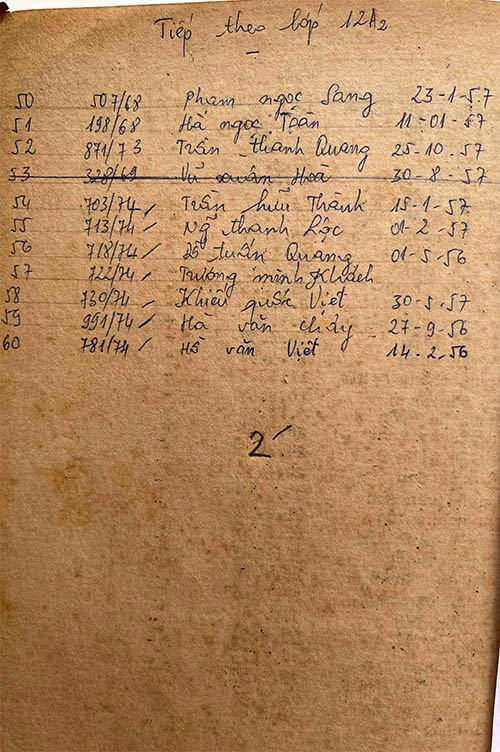 Tiếp theo lớp 12A2
50 507/68 Phạm ngọc Sang 23-1-57
51 198/68 Hà ngọc Toàn 11-01-57
52 871/73 Trần thanh Quang 25-10-57
53 328/69 Vũ xuân Hoà 30-8-57
54 703/74 Trần hữu Thành 15-1-57
55 713/74 Ng~ thanh Lộc 01-2-57
56 718/74 Đỗ tuấn Quang 01-5-56
57 722/74 Trương minh Khách
58 730/74 Khiếu quốc Việt 30-5-57
59 991/74 Hà văn 27-9-56
60 781/74 Hồ văn Việt 14-2-56
2